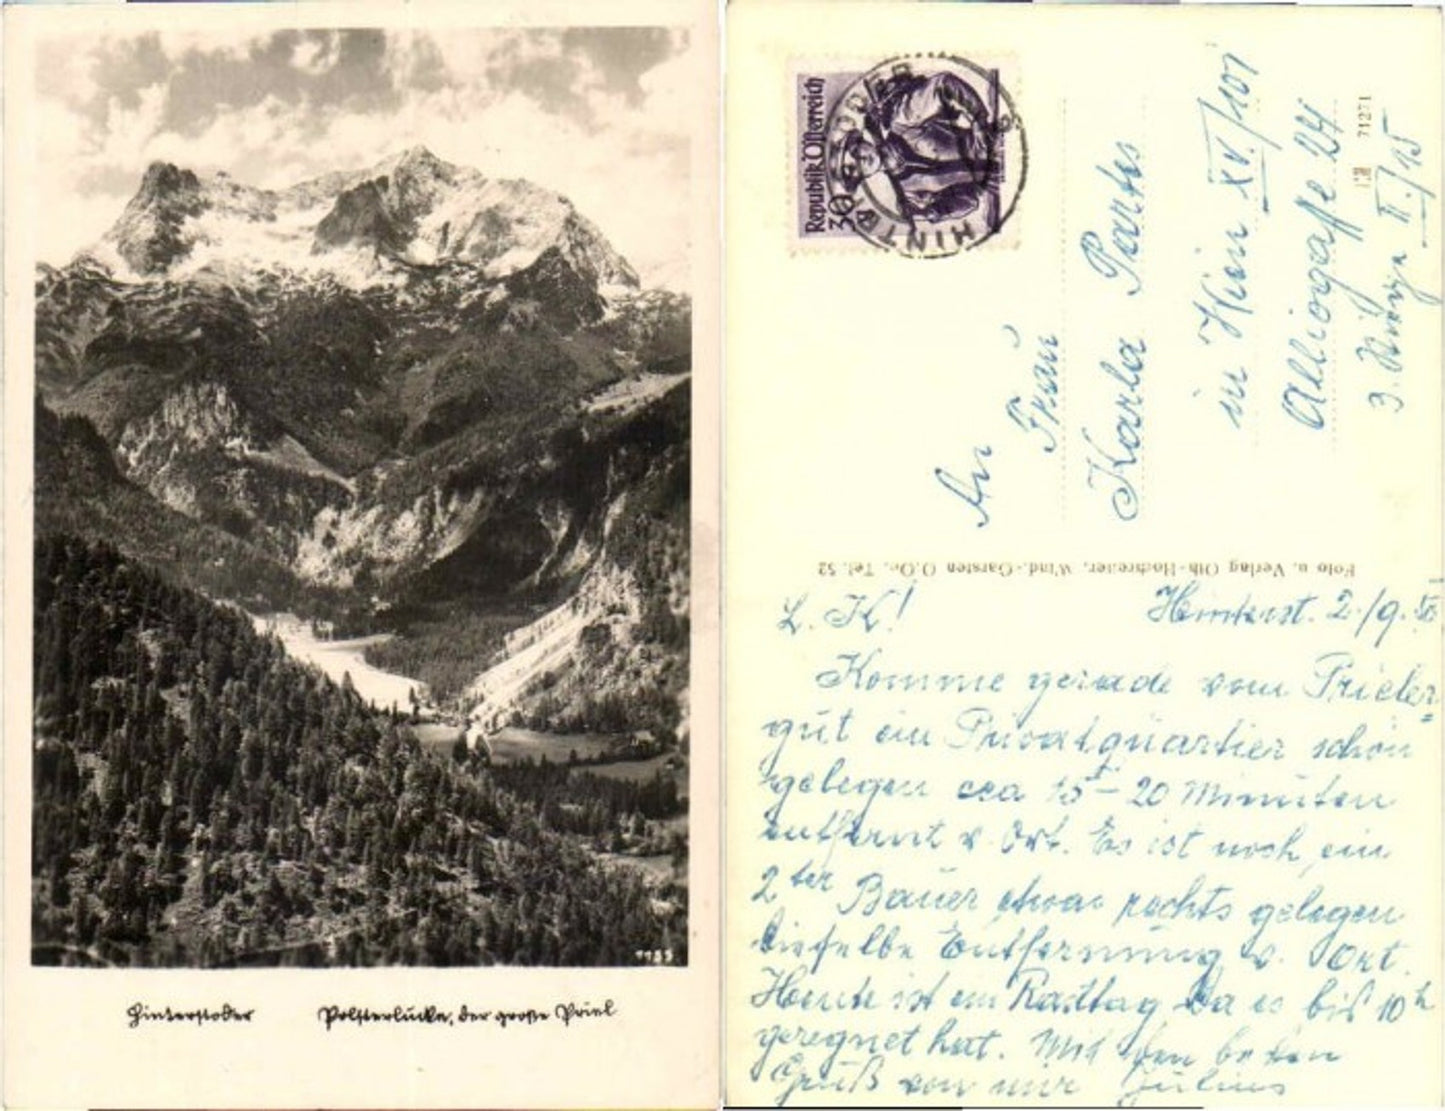 1153
Hinterstoder Polsterlücke, der große Priel
Republik Österreich
30
HINTERSTODER
An
Frau
Karla Partes
in Wien XV./101
Alliogasse 24
3. Stiege II./15
71271
Foto u. Verlag Oth-Hochreiter, Wind.-Garsten O.Oe. Tel. 52
L. K! Hinterst. 2./9.
Komme gerade vom Prieler=
gut ein Privatquartier schön
gelegen cca 15 - 20 Minuten
entfernt v. Ort. Es ist noch ein
2ter Bauer etwas rechts gelegen
dieselbe Entfernung v. Ort.
Heute ist ein Rasttag da es bis 10h
geregnet hat. Mit den besten
Gruß von mir Julius